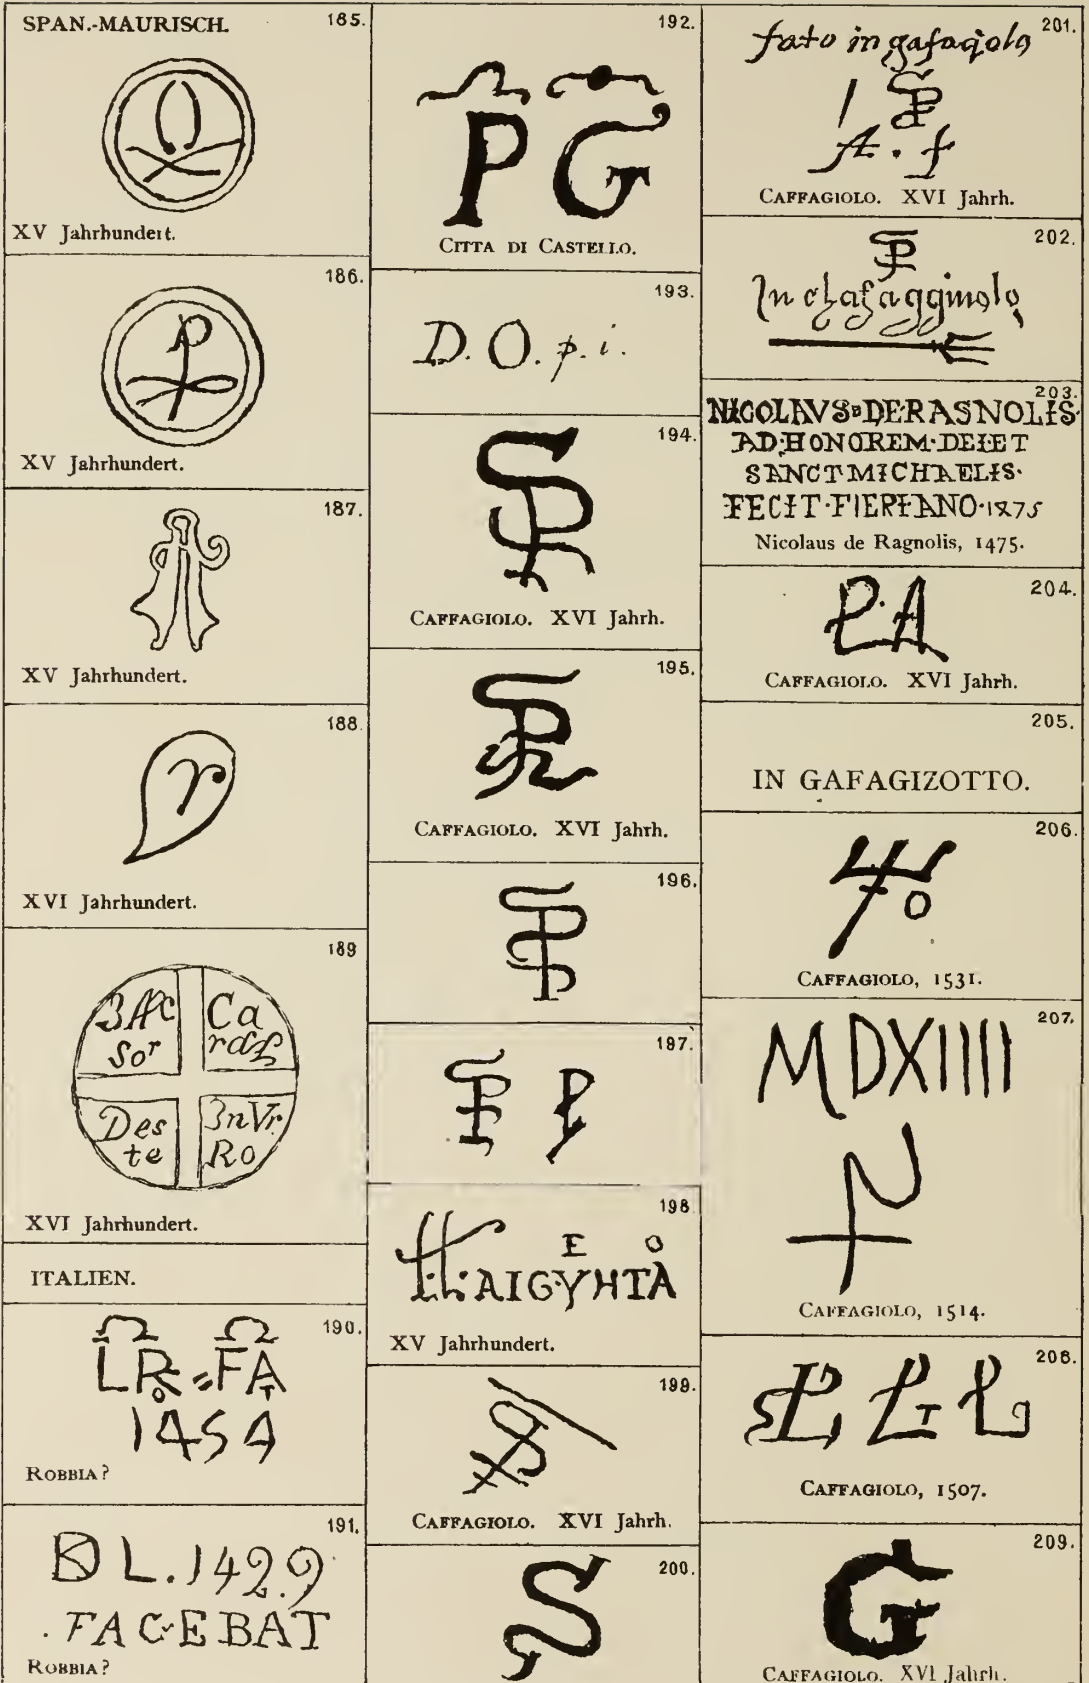 SPAN.-MAURISCH.
185.
XV Jahrhundert.
186.
P
XV Jahrhundert.
187.
XV Jahrhundert.
188.
r
XVI Jahrhundert.
189
Sor
Ca
Des
te
3nVr.
Ro
XVI Jahrhundert.
ITALIEN.
190.
LR FA
O T
1454
ROBBIA?
191.
L. 1429
. FACEBAT
ROBBIA?
192.
P G
CITTA DI CASTELLO.
193.
D. O. p. i.
194.
SP
CAFFAGIOLO. XVI Jahrh.
195.
CAFFAGIOLO. XVI Jahrh.
196.
SP
197.
198.
E O
AIGYHTA
XV Jahrhundert.
199.
CAFFAGIOLO. XVI Jahrh.
200.
S
201.
fato in gafagiolo
SP
A. f
CAFFAGIOLO. XVI Jahrh.
202.
SP
In chafaggiuolo
203.
NICOLAVS DE RASNOLIS
AD·HONOREM·DEI ET
SANCT MICHAELIS·
FECIT·FIERI ANO·1475
Nicolaus de Ragnolis, 1475.
204.
P.A
CAFFAGIOLO. XVI Jahrh.
205.
IN GAFAGIZOTTO.
206.
CAFFAGIOLO, 1531.
207.
MDXIIII
CAFFAGIOLO, 1514.
208.
CAFFAGIOLO, 1507.
209.
G
CAFFAGIOLO. XVI Jahrh.